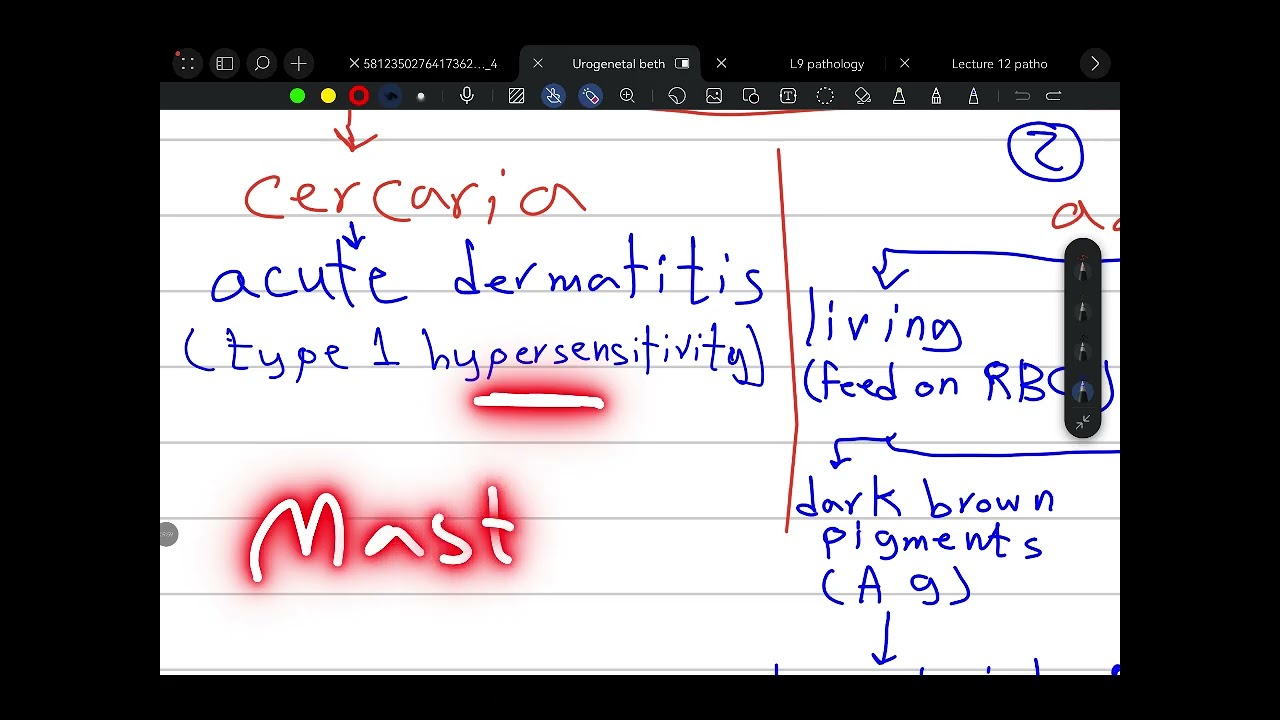 5812350276417362..._4
Urogenetal beth
L9 pathology
Lecture 12 patho
cercaria
acute dermatitis
(type 1 hypersensitivity)
Mast
2
living
(feed on RBC)
dark brown
pigments
(Ag)